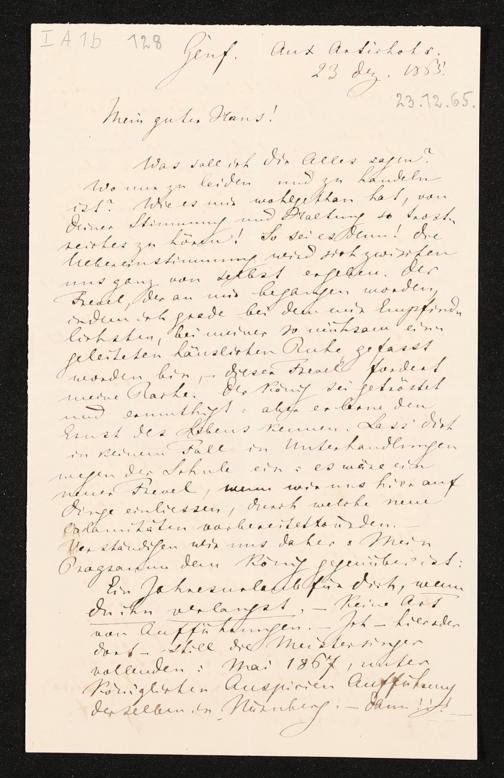 I A 1b 128
Genf. Aux Artichots.
23 Dez. 1865.
23.12.65.
Mein guter Hans!
Was soll ich Dir Alles sagen?
Wo nur zu leiden und zu handeln
ist? Wie es mir wohlgethan hat, von
Deiner Stimmung und Haltung so trost-
reiches zu hören! So sei es denn! Die
Uebereinstimmung wird sich zwischen
uns ganz von selbst ergeben. Der
Frevel, der an mir begangen worden,
indem ich grade bei dem mir Empfind-
lichsten, bei meiner so mühsam ein-
geleiteten häuslichen Ruhe gefasst
worden bin, – dieser Frevel fordert
meine Rache. Der König sei getröstet
und ermuthigt: aber er lerne den
Ernst des Lebens kennen. Lass' Dich
in keinem Fall in Unterhandlungen
wegen der Schule ein: es wäre ein
neuer Frevel, wenn wir uns hier auf
Dinge einliessen, durch welche neue
Calamitäten vorbereitet würden. –
Verständigen wir uns daher: Mein
Programm dem König gegenüber ist:
Ein Jahresurlaub für Dich, wenn
Du ihn verlangst. – Keine Art
von Aufführungen. – Ich – hier oder
dort – still die Meistersinger
vollenden: Mai 1867, unter
Königlichen Auspicien Aufführung
derselben in Nürnberg. – dann!!! –